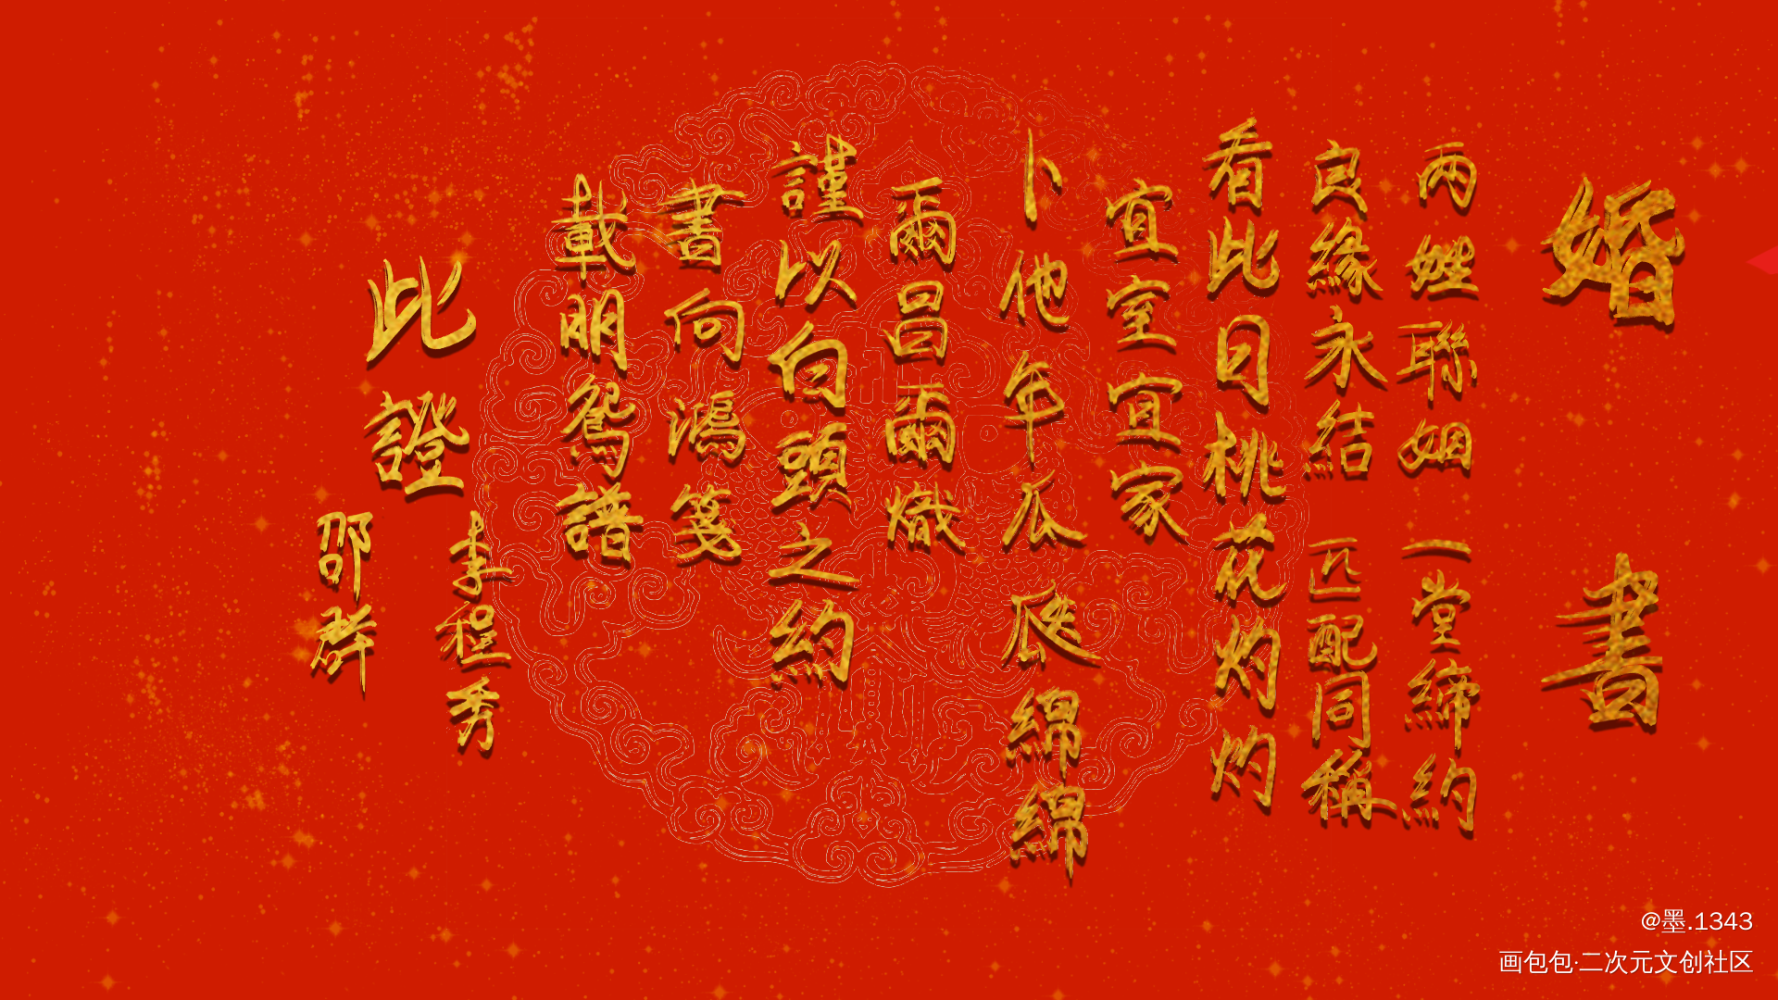 婚書
兩姓聯姻 一堂締約
良緣永結 匹配同稱
看此日桃花灼灼
宜室宜家
卜他年瓜瓞綿綿
爾昌爾熾
謹以白頭之約
書向鴻箋
載明鴛譜
此證
李程秀
邵群
@墨.1343
画包包·二次元文创社区